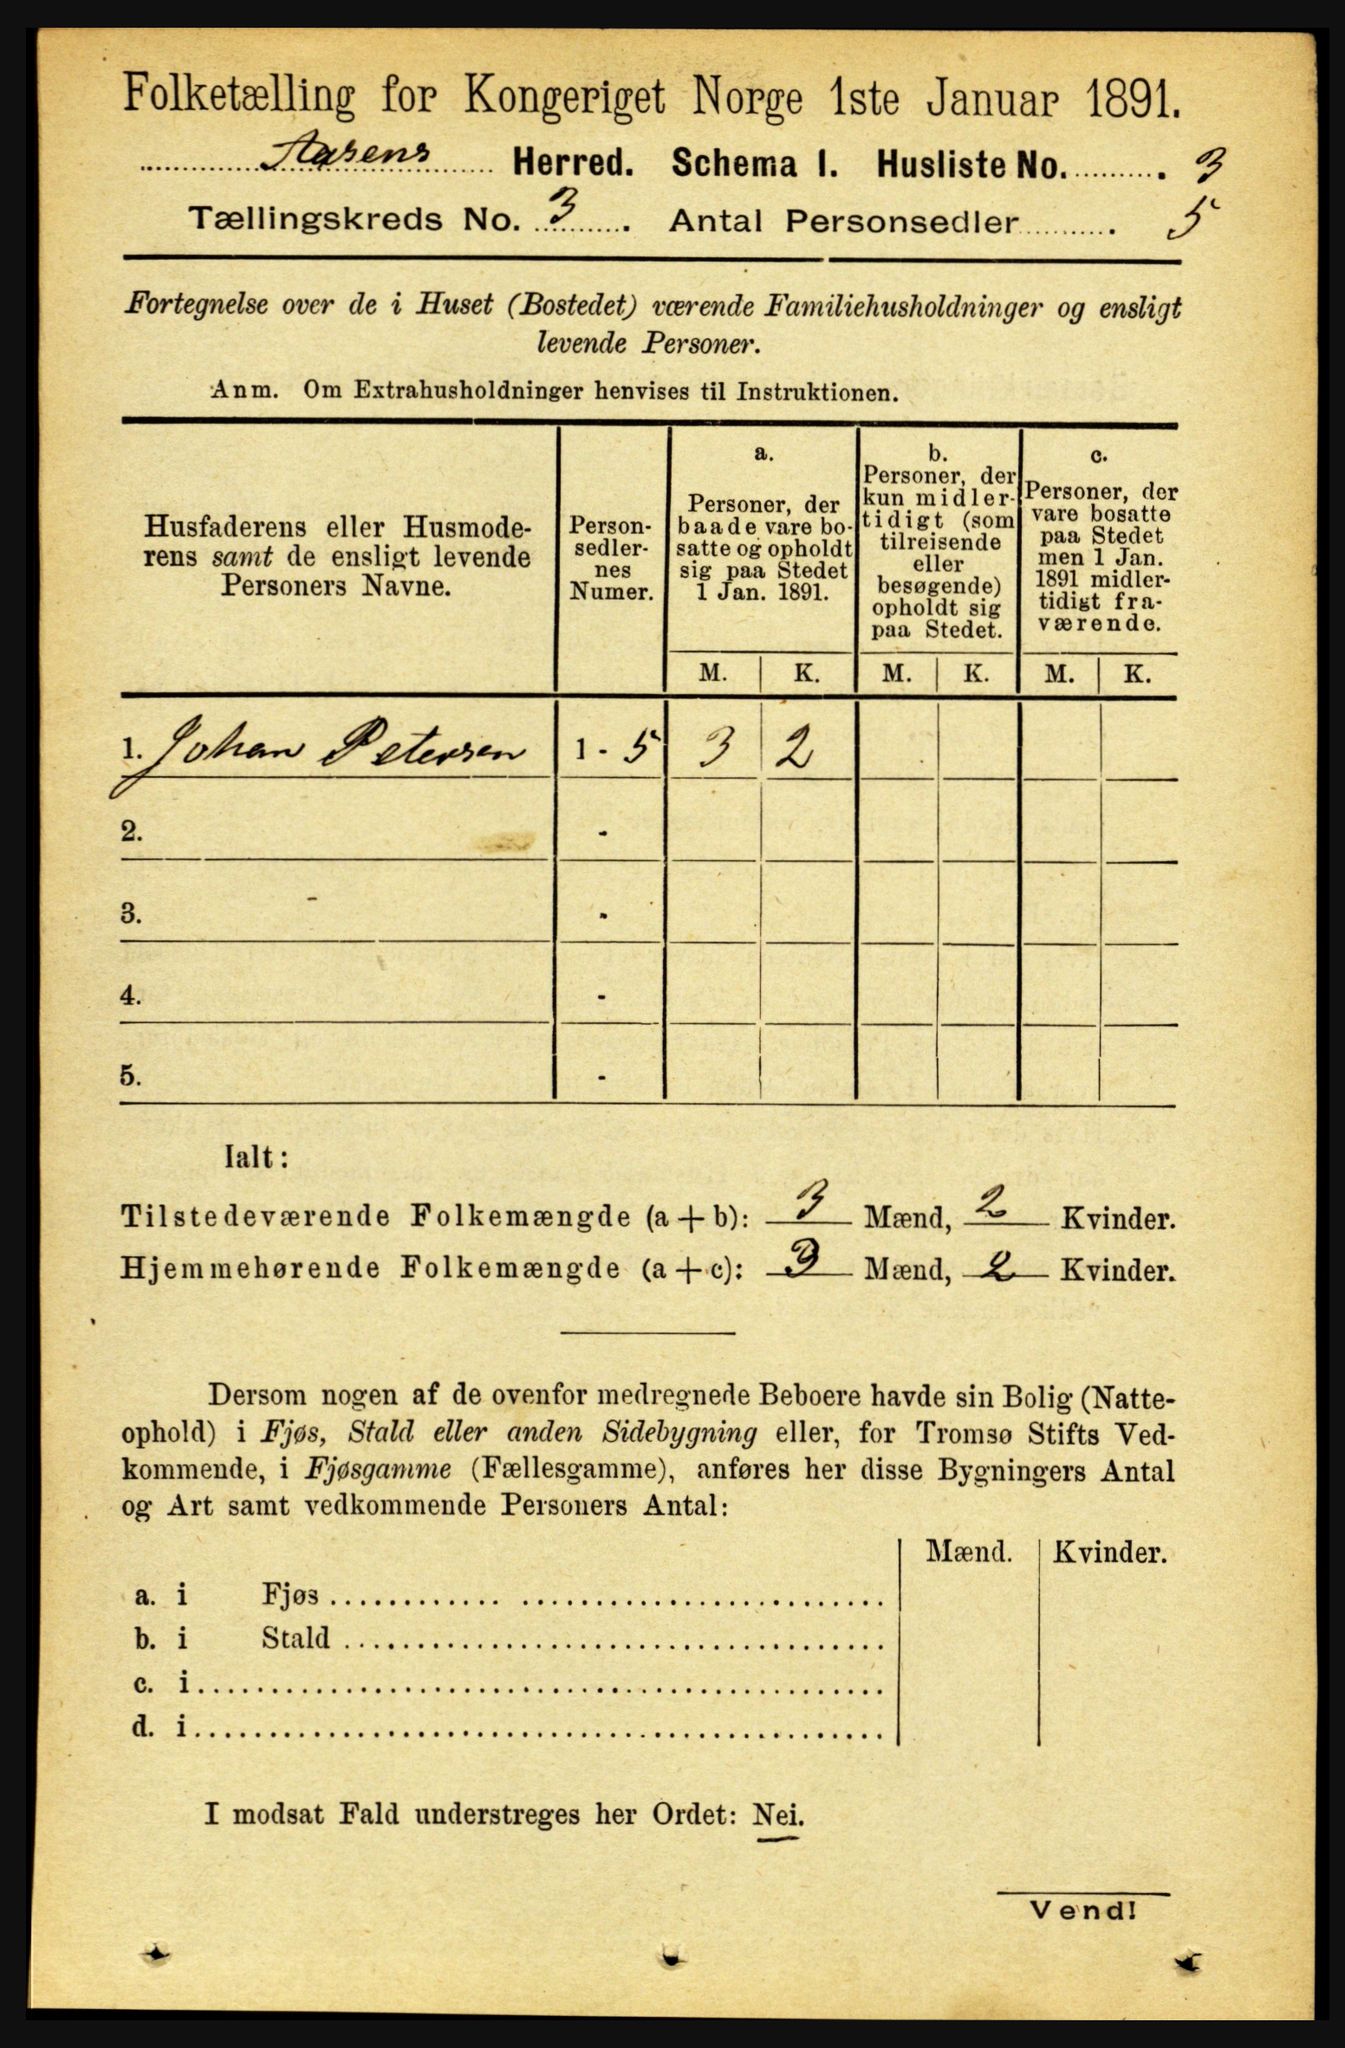 Folketælling for Kongeriget Norge 1ste Januar 1891.
Aasens Herred. Schema I. Husliste No. 3
Tællingskreds No. 3. Antal Personsedler 5
Fortegnelse over de i Huset (Bostedet) værende Familiehusholdninger og ensligt
levende Personer.
Anm. Om Extrahusholdninger henvises til Instruktionen.
Husfaderens eller Husmode-
rens samt de ensligt levende
Personers Navne.
Person-
sedler-
nes
Numer.
a.
Personer, der
baade vare bo-
satte og opholdt
sig paa Stedet
1 Jan. 1891.
b.
Personer, der
kun midler-
tidigt (som
tilreisende
eller
besøgende)
opholdt sig
paa Stedet.
c.
Personer, der
vare bosatte
paa Stedet
men 1 Jan.
1891 midler-
tidigt fra-
værende.
M. K. M. K. M. K.
1. Johan Petersen 1 - 5 3 2
2. -
3. -
4. -
5. -
Ialt:
Tilstedeværende Folkemængde (a + b): 3 Mænd, 2 Kvinder.
Hjemmehørende Folkemængde (a + c): 3 Mænd, 2 Kvinder.
Dersom nogen af de ovenfor medregnede Beboere havde sin Bolig (Natte-
ophold) i Fjøs, Stald eller anden Sidebygning eller, for Tromsø Stifts Ved-
kommende, i Fjøsgamme (Fællesgamme), anføres her disse Bygningers Antal
og Art samt vedkommende Personers Antal:
Mænd. Kvinder.
a. i Fjøs
b. i Stald
c. i
d. i
I modsat Fald understreges her Ordet: Nei.
Vend!